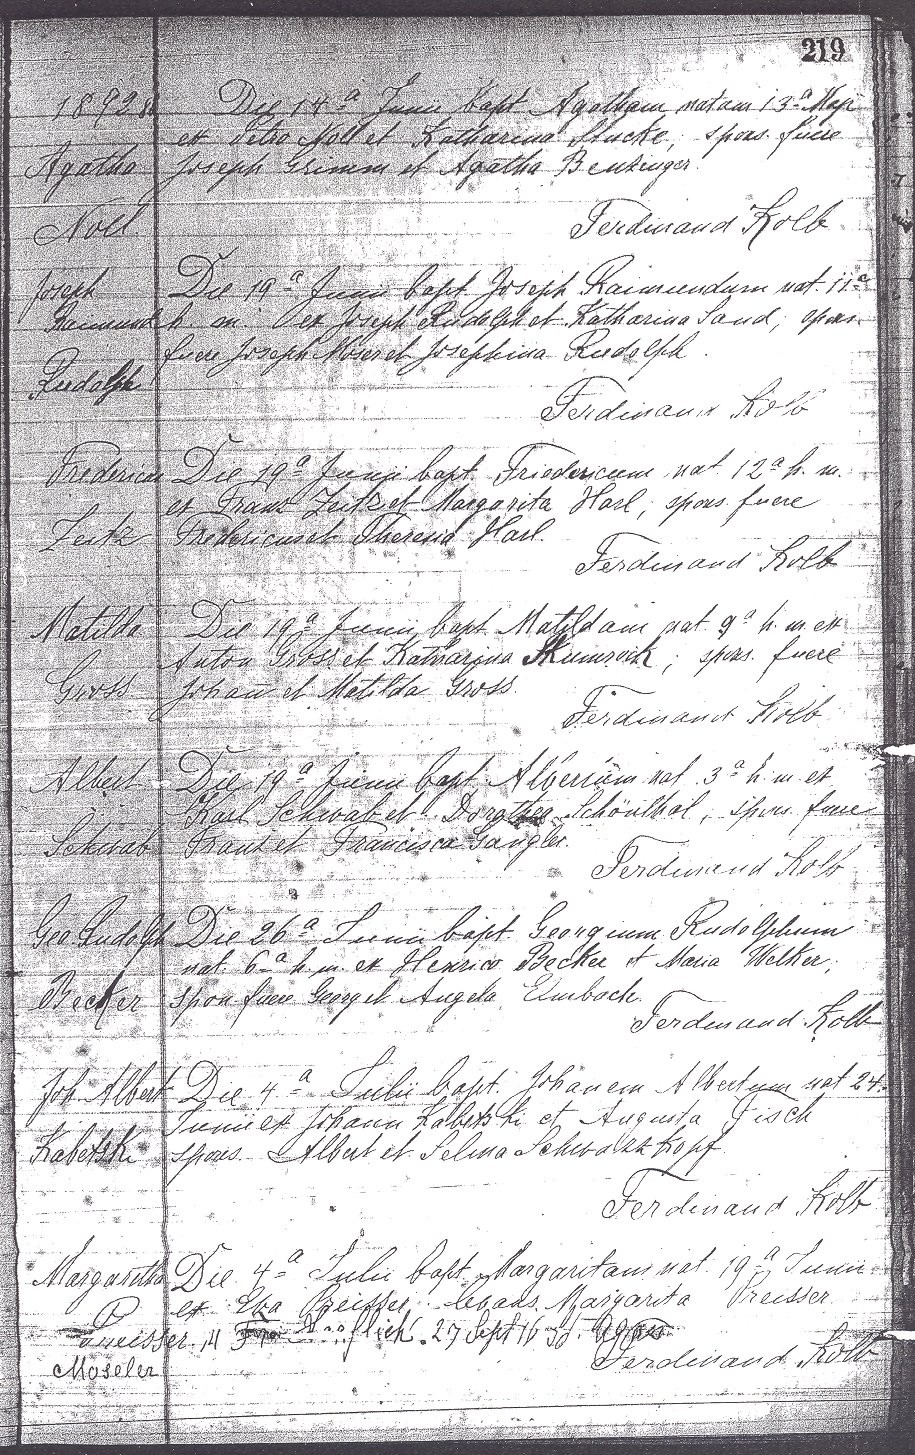 219
1892
Agatha
Noll
Die 14ª Junii bapt Agatham natam 13ª Maji
ex Petro Noll et Katharina Stucke, spons. fuere
Joseph Grimm et Agatha Benzinger.
Ferdinand Kolb
Joseph
Raimund
Rudolph
Die 19ª Junii bapt Joseph Raimundum nat. 11ª
h. m. ex Joseph Rudolph et Katharina Sand, spons.
fuere Joseph Moser et Josephina Rudolph.
Ferdinand Kolb
Fredericus
Zeitz
Die 19ª Junii bapt. Friedericum nat. 12ª h. m.
ex Franz Zeitz et Margarita Hasl, spons. fuere
Fredericus et Theresia Hasl.
Ferdinand Kolb
Matilda
Gross
Die 19ª Junii bapt Matildam nat. 9ª h. m. ex
Anton Gross et Katharina; spons. fuere
Johan et Matilda Gross.
Ferdinand Kolb
Albert
Schwab
Die 19ª Junii bapt. Albertum nat. 3ª h. m. ex
Karl Schwab et Dorothea Schönthal, spons. fuere
Franz et Francisca Gangler.
Ferdinand Kolb
Geo. Rudolph
Becker
Die 26ª Junii bapt. Georgium Rudolphum
nat. 6ª h. m. ex Henrico Becker et Maria Welker,
spon fuere Georg et Angela Embach.
Ferdinand Kolb
Joh Albert
Kabetski
Die 4ª Julii bapt. Johanem Albertum nat 24.
Junii ex Johann Kabetski et Augusta Fisch
spons. Albert et Selma Schwalzkopf
Ferdinand Kolb
Margaretha
Preisser
Moseler
Die 4ª Julii bapt Margaritam nat. 19ª Junii
ex Eva Preisser, levans Margarita Preisser
27 Sept 16
Ferdinand Kolb